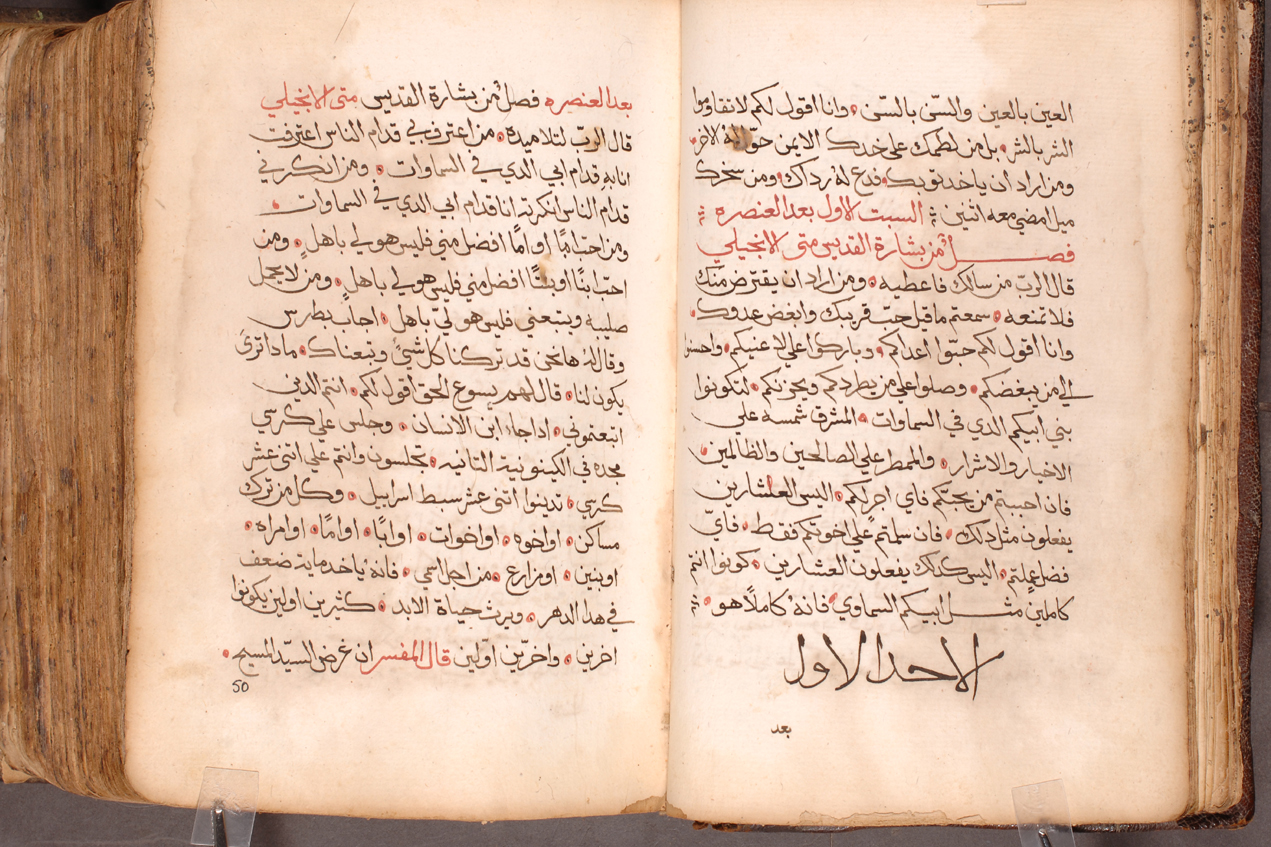 العين بالعين والسّن بالسّن وانا اقول لكم لا تقاوموا
الشر بالشر بل من لطمك على خدك الايمن حوّل لهُ الاخر
ومن اراد ان ياخد توبك فدع لهُ رداك ومن سخرك
ميل امضي معه اتنين السبت الاول بعد العنصره
فصل من بشارة القديس متى الانجيلي
قال الربّ من سالك فاعطيه ومن اراد ان يقترض منك
فلا تمنعه سمعتم ما قيل حبّ قريبك وابغض عدوك
وانا اقول لكم حبّوا اعداكم وباركوا على لاعنيكم واحسنوا
الي من يبغضكم وصلوا على من يطردكم ويحزنكم لتكونوا
بني ابيكم الدي في السماوات المشرق شمسه على
الاخيار والاشرار والممطر على الصالحين والظالمين
فان احببتم من يحبّكم فاي اجر لكم اليس العشارين
يفعلون مثل دلك فان سلمتم على اخوتكم فقط فايّ
فضل عملتم اليس كدلك يفعلون العشارين كونوا انتم
كاملين مثل ابيكم السماوي فانهُ كاملًا هو
الاحد الاول
بعد
بعد العنصره فصل من بشارة القديس متى الانجيلي
قال الربّ لتلاميده من اعترف بي قدام الناس اعترفت
انا به قدام ابي الدي في السماوات ومن انكرني
قدام الناس انكرته انا قدام ابي الدي في السماوات
ومن احبّ ابًا او امًا افضل مني فليس هو لي باهل ومن
احبّ ابنًا او بنتًا افضل مني فليس هو لي باهل ومن لا يحمل
صليبه ويتبعني فليس هو لي باهل اجاب بطرس
وقال لهُ ها نحن قد تركنا كل شيً وتبعناك مادا ترى
يكون لنا قال لهم يسوع الحق اقول لكم انتم الدين
اتبعتموني ادا جا ابن الانسان وجلس على كرسي
مجده في الكينونية التانيه تجلسون وانتم علي اتنى عشر
كرسي تدينوا اتنى عشر سبط اسراييل وكل من ترك
مساكن او اخوه او اخوات او ابًا او امًا او امراه
او بنين او مزارع من اجل اسمي فانهُ ياخد ماية ضعف
في هدا الدهر ويرث حياة الابد كثيرين اولين يكونوا
اخرين واخرين اوّلين قال المفسر ان غرض السيّد المسيح
50